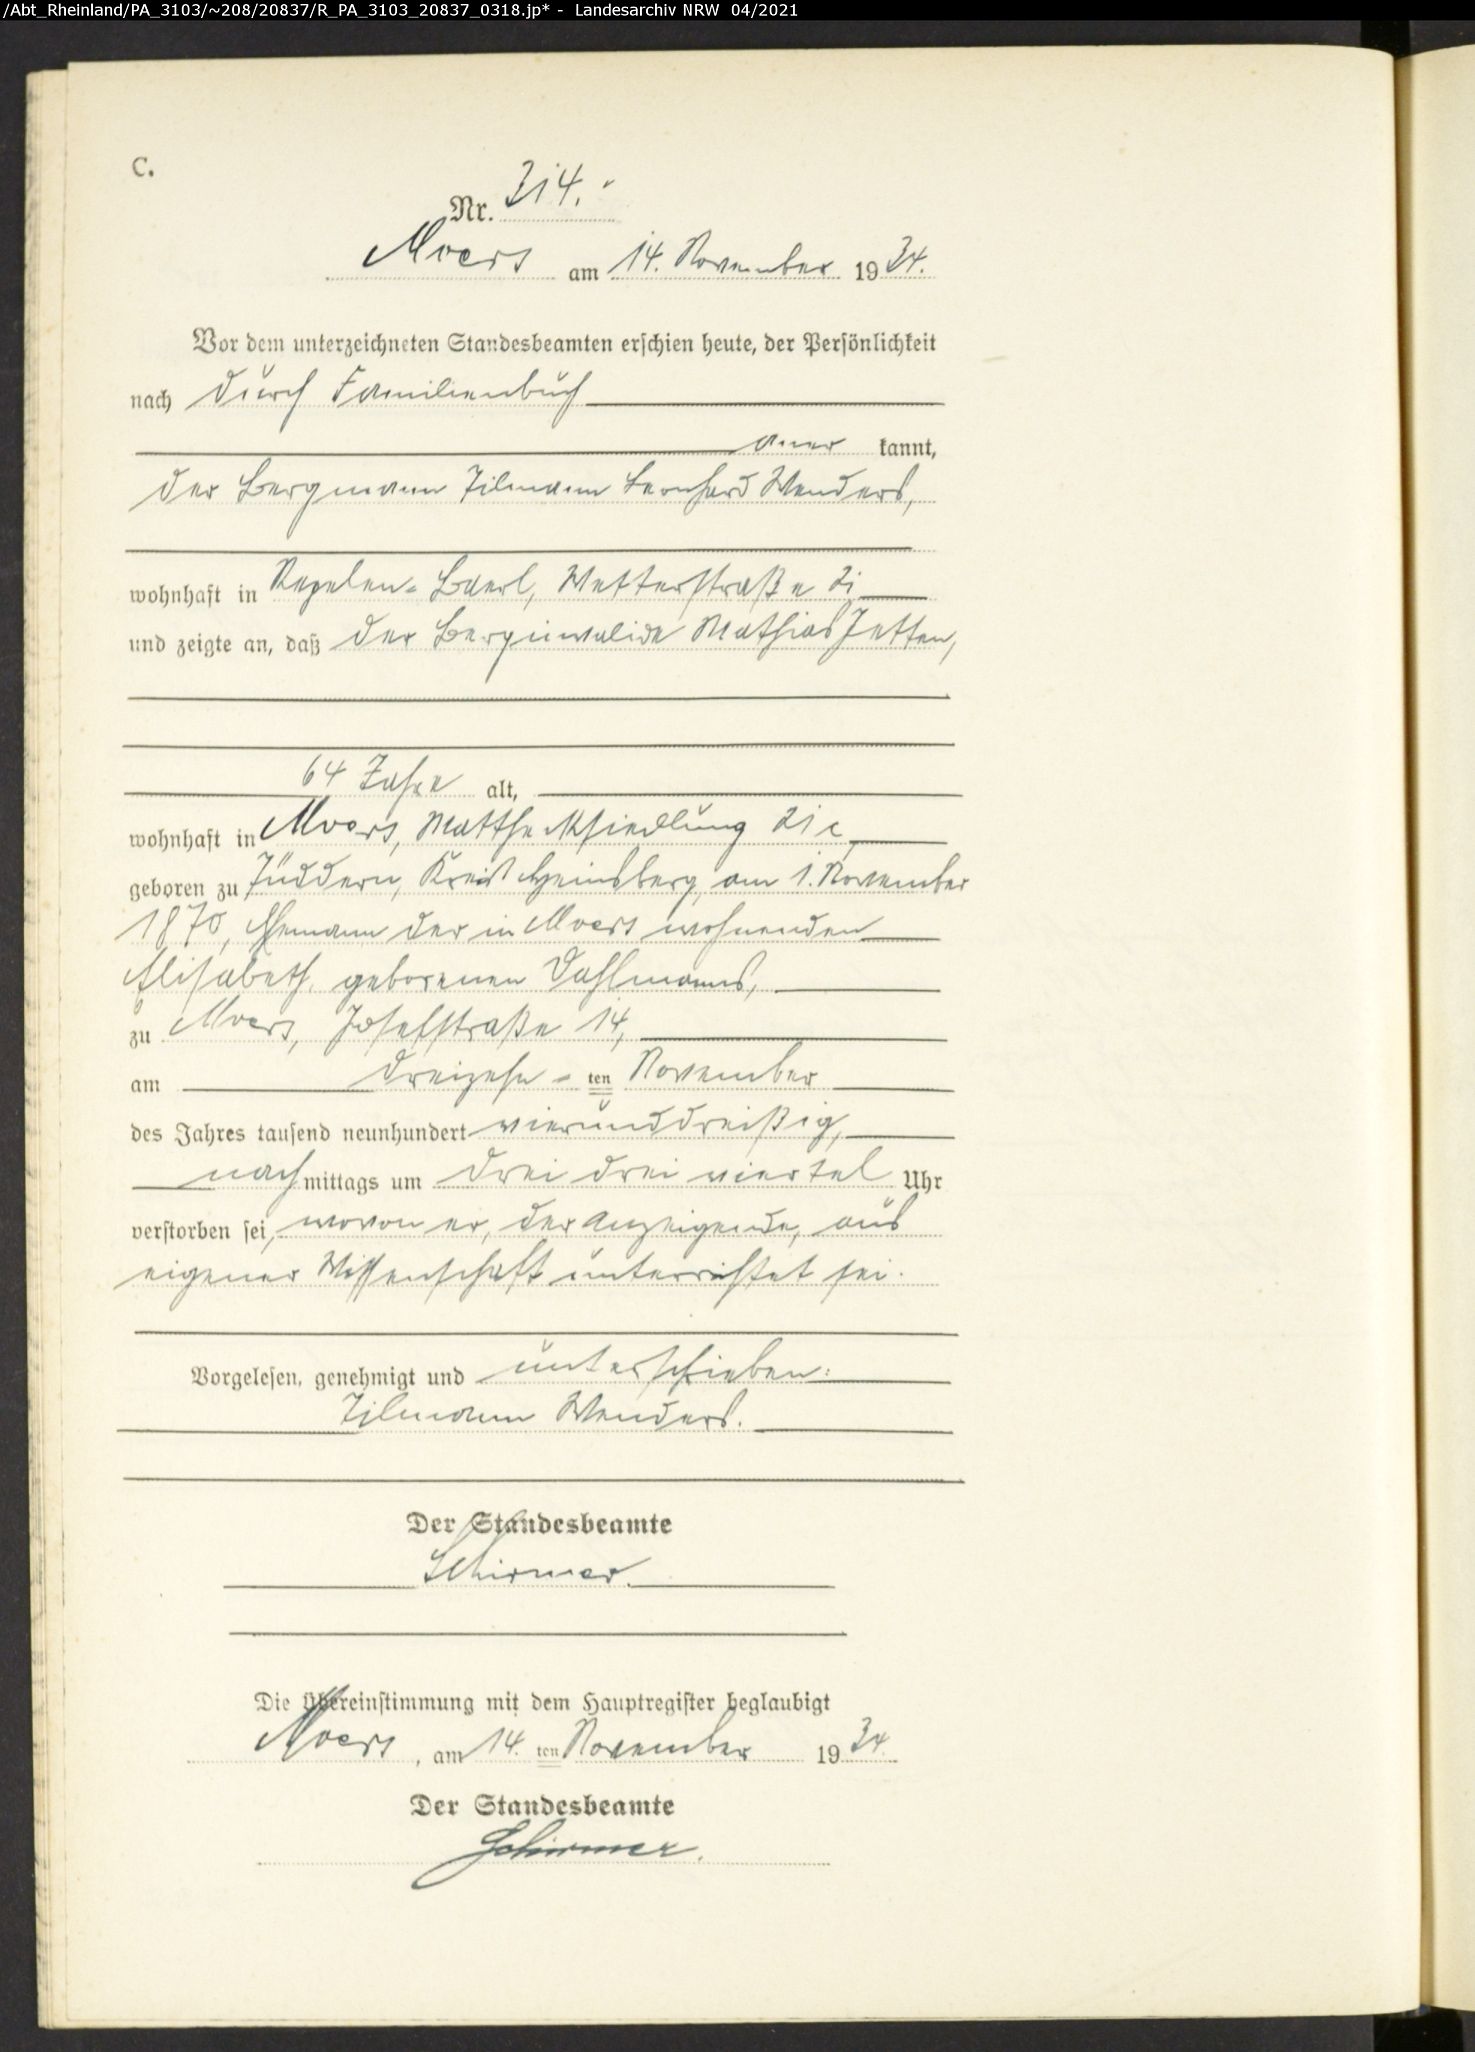 /Abt_Rheinland/PA_3103/~208/20837/R_PA_3103_20837_0318.jp* - Landesarchiv NRW 04/2021
C.
Nr. 314.
Moers am 14. November 1934.
Vor dem unterzeichneten Standesbeamten erschien heute, der Persönlichkeit
nach durch Familienbuch
aner kannt,
der Bergmann Tilmann Leonhard Wenders,
wohnhaft in Repelen-Baerl, Wetterstraße 21
und zeigte an, daß der Berginvalide Mathias Jetten,
64 Jahre alt,
wohnhaft in Moers, Matthecksiedlung 21c,
geboren zu Tüddern, Kreis Heinsberg, am 1. November
1870, Ehemann der in Moers wohnenden
Elisabeth, geborenen Dahlmanns,
zu Moers, Josefstraße 14,
am dreizehn-ten November
des Jahres tausend neunhundert vierunddreißig,
nach mittags um drei drei viertel Uhr
verstorben sei, wovon er, der Anzeigende, aus
eigener Wissenschaft unterrichtet sei.
Vorgelesen, genehmigt und unterschrieben:
Tilmann Wenders.
Der Standesbeamte
Schirmer.
Die Übereinstimmung mit dem Hauptregister beglaubigt
Moers, am 14. ten November 1934.
Der Standesbeamte
Schirmer.